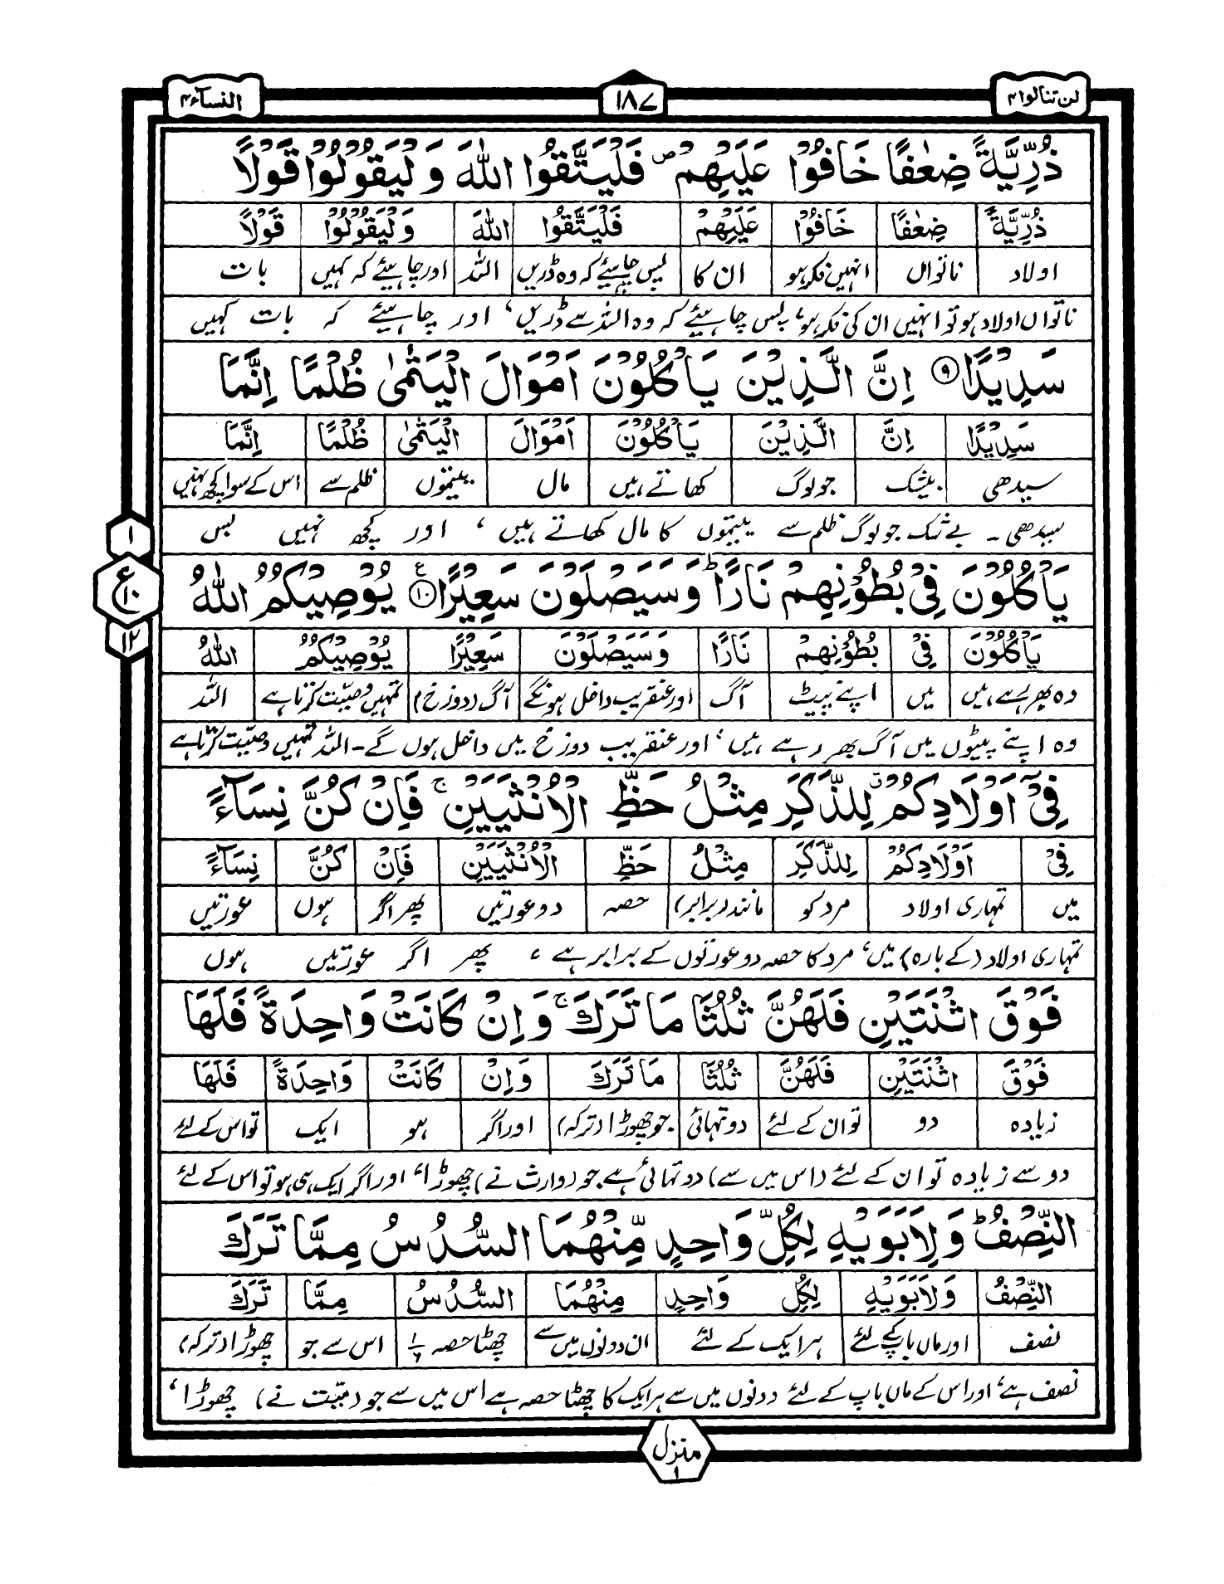 لن تنالوا ۴
۱۸۷
النسآء ۴
ذُرِّيَّةً ضِعٰفًا خَافُوْا عَلَيْهِمْ ۖ فَلْيَتَّقُوا اللّٰهَ وَ لْيَقُوْلُوْا قَوْلًا
ذُرِّيَّةً ضِعٰفًا خَافُوْا عَلَيْهِمْ فَلْيَتَّقُوا اللّٰهَ وَلْيَقُوْلُوْا قَوْلًا
اولاد ناتواں انہیں فکر ہو ان کا پس چاہیئے کہ وہ ڈریں اللہ اور چاہیئے کہ کہیں بات
ناتواں اولاد ہو تو انہیں ان کی فکر ہو، پس چاہیئے کہ وہ اللہ سے ڈریں، اور چاہیئے کہ بات کہیں
سَدِيْدًا ۹ اِنَّ الَّذِيْنَ يَاْكُلُوْنَ اَمْوَالَ الْيَتٰمٰى ظُلْمًا اِنَّمَا
سَدِيْدًا اِنَّ الَّذِيْنَ يَاْكُلُوْنَ اَمْوَالَ الْيَتٰمٰى ظُلْمًا اِنَّمَا
سیدھی بیشک جو لوگ کھاتے ہیں مال یتیموں ظلم سے اس کے سوا کچھ نہیں
سیدھی ۔ بے شک جو لوگ ظلم سے یتیموں کا مال کھاتے ہیں ، اور کچھ نہیں بس
۱
يَاْكُلُوْنَ فِيْ بُطُوْنِهِمْ نَارًا ؕ وَسَيَصْلَوْنَ سَعِيْرًا ۱۰ ع يُوْصِيْكُمُ اللّٰهُ
ع ۱۰
۱۲
يَاْكُلُوْنَ فِيْ بُطُوْنِهِمْ نَارًا وَسَيَصْلَوْنَ سَعِيْرًا يُوْصِيْكُمُ اللّٰهُ
وہ بھر رہے ہیں میں اپنے پیٹ آگ اور عنقریب داخل ہونگے آگ (دوزخ) تمہیں وصیت کرتا ہے اللہ
وہ اپنے پیٹوں میں آگ بھر رہے ہیں، اور عنقریب دوزخ میں داخل ہوں گے ۔ اللہ تمہیں وصیت کرتا ہے
فِيْٓ اَوْلَادِكُمْ ۗ لِلذَّكَرِ مِثْلُ حَظِّ الْاُنْثَيَيْنِ ۚ فَاِنْ كُنَّ نِسَآءً
فِيْٓ اَوْلَادِكُمْ لِلذَّكَرِ مِثْلُ حَظِّ الْاُنْثَيَيْنِ فَاِنْ كُنَّ نِسَآءً
میں تمہاری اولاد مرد کو مانند (برابر) حصہ دو عورتیں پھر اگر ہوں عورتیں
تمہاری اولاد (کے بارہ) میں، مرد کا حصہ دو عورتوں کے برابر ہے ، پھر اگر عورتیں ہوں
فَوْقَ اثْنَتَيْنِ فَلَهُنَّ ثُلُثَا مَا تَرَكَ ۚ وَ اِنْ كَانَتْ وَاحِدَةً فَلَهَا
فَوْقَ اثْنَتَيْنِ فَلَهُنَّ ثُلُثَا مَا تَرَكَ وَ اِنْ كَانَتْ وَاحِدَةً فَلَهَا
زیادہ دو تو ان کے لئے دو تہائی جو چھوڑا (ترکہ) اور اگر ہو ایک تو اس کے لئے
دو سے زیادہ تو ان کے لئے (اس میں سے) دو تہائی ہے جو (وارث نے) چھوڑا، اور اگر ایک ہی ہو تو اس کے لئے
النِّصْفُ ؕ وَ لِاَبَوَيْهِ لِكُلِّ وَاحِدٍ مِّنْهُمَا السُّدُسُ مِمَّا تَرَكَ
النِّصْفُ وَلِاَبَوَيْهِ لِكُلِّ وَاحِدٍ مِّنْهُمَا السُّدُسُ مِمَّا تَرَكَ
نصف اور ماں باپ کے لئے ہر ایک کے لئے ان دونوں میں سے چھٹا حصہ ۱/۶ اس سے جو چھوڑا (ترکہ)
نصف ہے، اور اس کے ماں باپ کے لئے دونوں میں سے ہر ایک کا چھٹا حصہ ہے اس میں سے جو (میّت نے) چھوڑا ،
منزل ۱